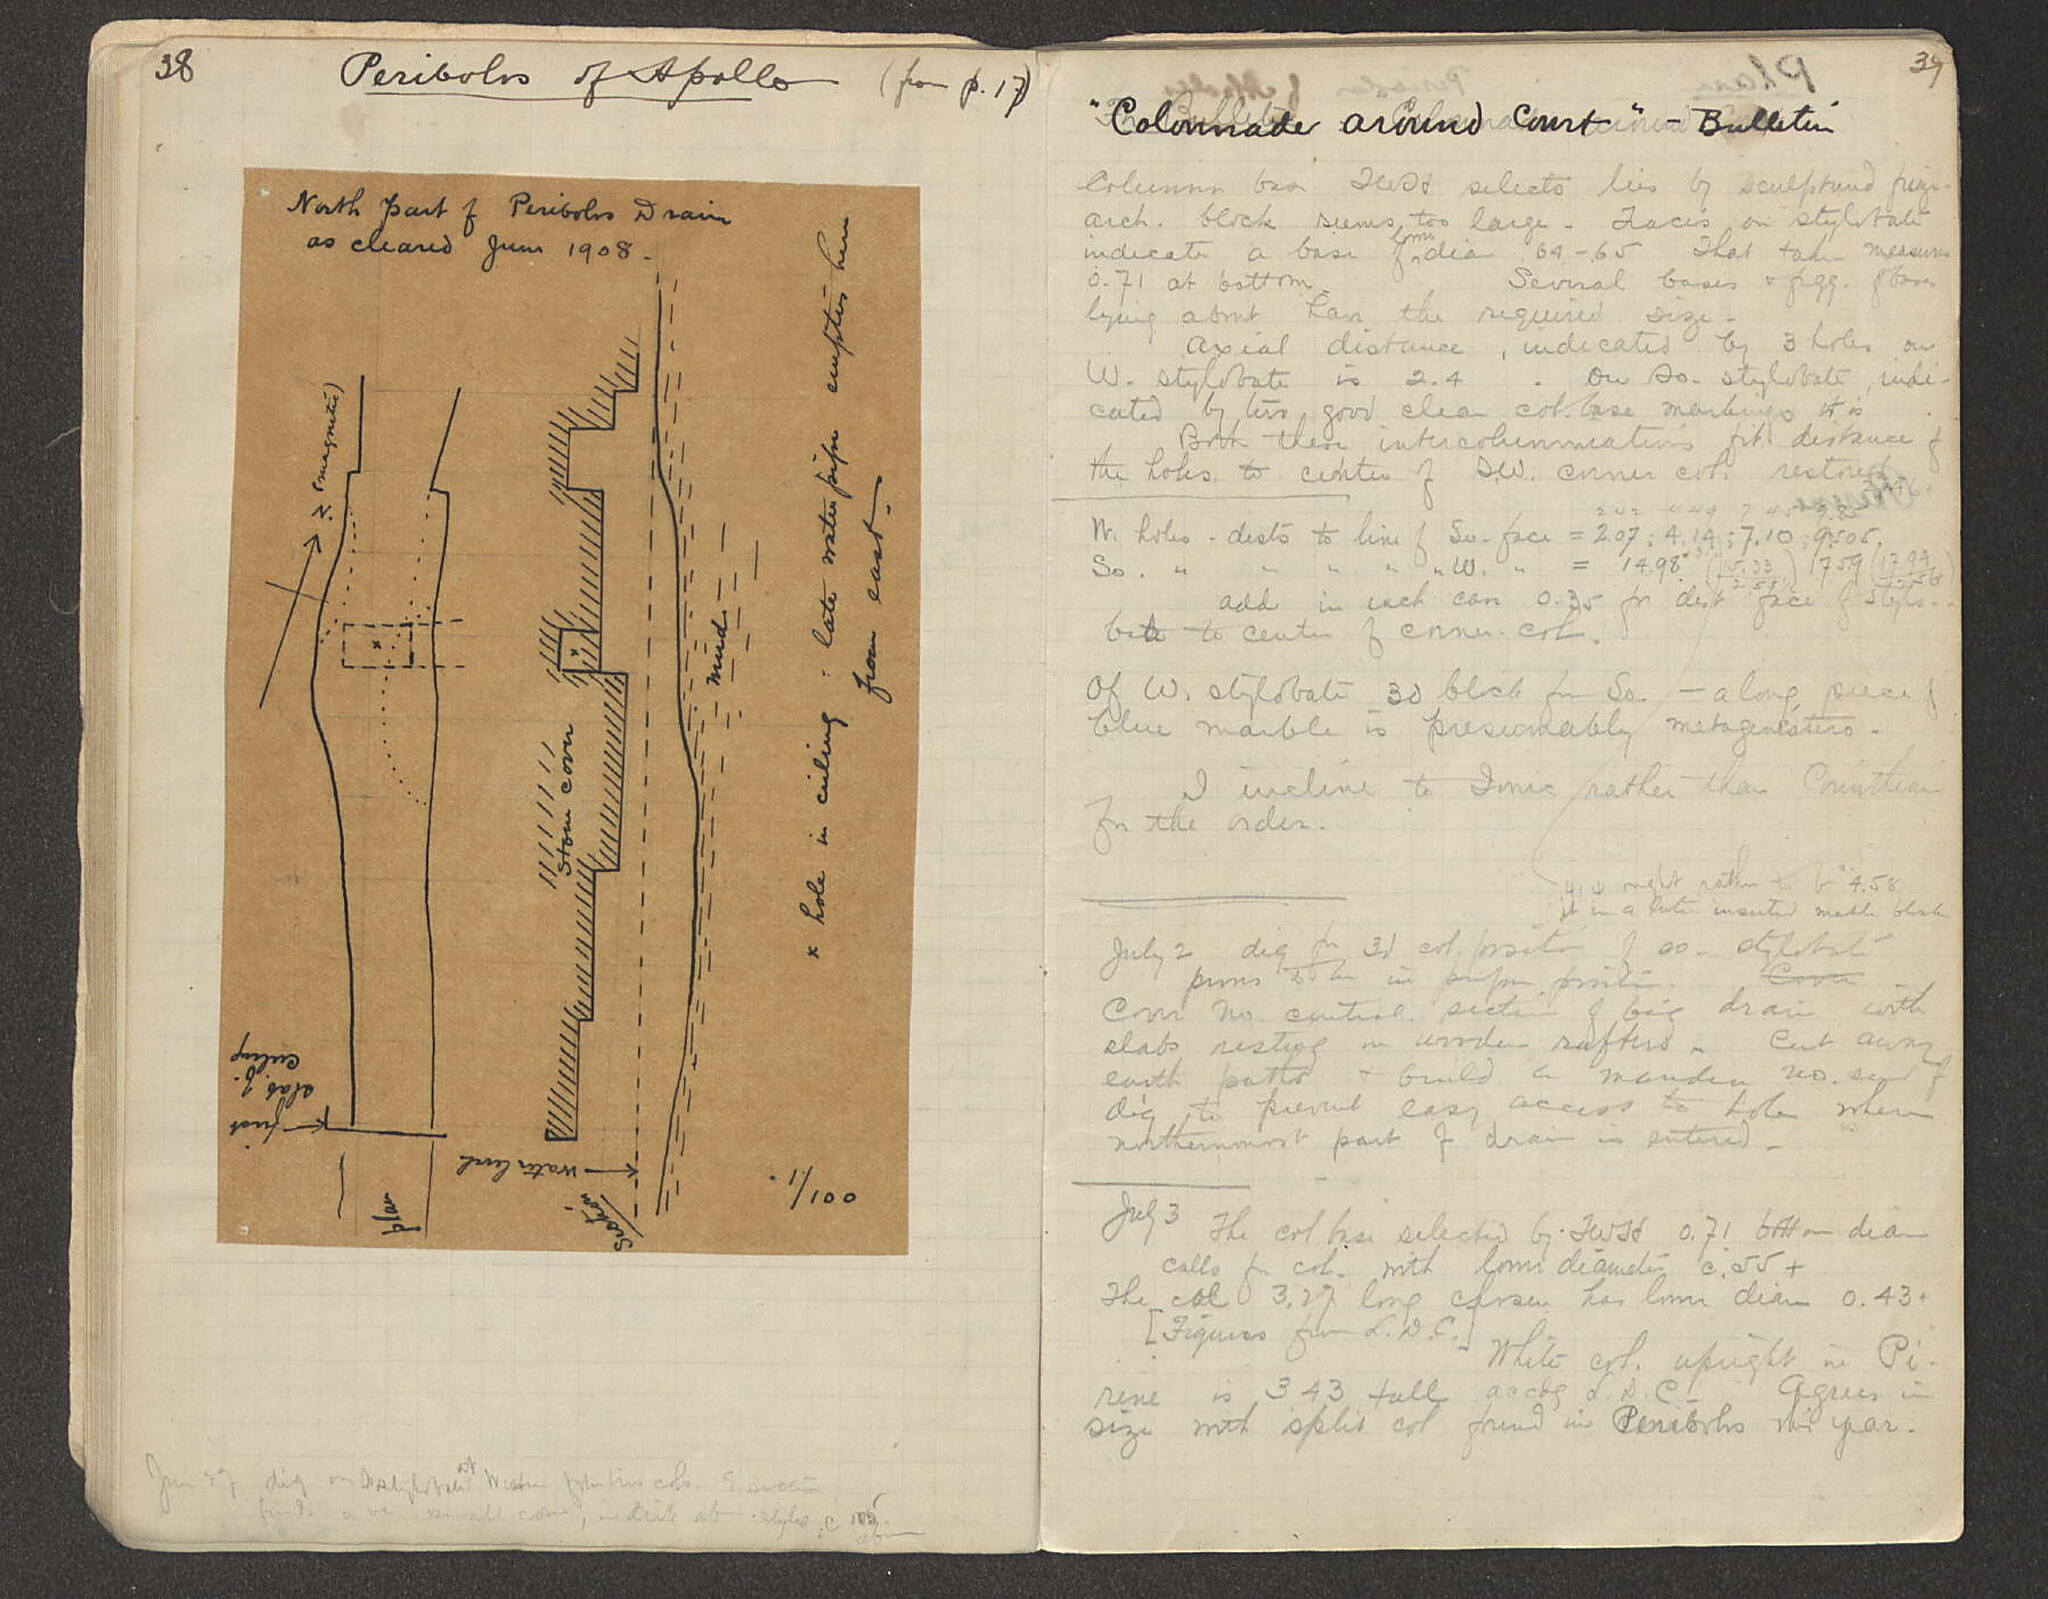 38
Peribolos of Apollo (from p. 17)
North Part of Peribolos Drain
as cleared June 1908.
N. (magnetic)
× hole in ceiling : late water pipe empties here
from east.
stone cover
mud
first
slab of
ceiling
water level
Plan
Section
1/100
June 27 dig on So stylobate at W.
small
39
"Colonnade around Court" - Bulletin
Column base selects lies by sculptured frieze-
arch. block seems too large - Traces on stylobate
indicate a base of lower dia .64-.65 That taken measures
0.71 at bottom. Several bases & frgg. of bases
lying about have the required size -
Axial distance, indicated by 3 holes on
W. stylobate is 2.4 . On So. stylobate, indi-
cated by two good clear col. base markings it is
Both these intercolumniations fit distance of
the holes to center of S.W. corner col. restored
W. holes - dists to line of So. face = 2.07; 4.14; 7.10; 9.505.
So. " " " " " W. " = 14.98 (15.33) 17.59 (17.94)
add in each case 0.35 for dist face of stylo-
bate to center of corner col.
Of W. stylobate 3d block from So. - a long piece of
blue marble is presumably metagenestero -
I incline to Ionic rather than Corinthian
for the order.
might rather to be 4.58
it in a later inserted marble block
July 2 dig for 3d col. position of So - stylobate
proves to be in proper position. Cover
Cover No. central section of big drain with
slabs resting on wooden rafters - Cut away
earth paths & build a mandra no. end of
dig to prevent easy access to hole where
northernmost part of drain is entered -
July 3 The col base selected by 0.71 bottom diam
calls for col. with lower diameter c .55 +
The col 3.27 long chosen has lower diam 0.43+
[Figures from L.D.C.]
White col. upright in Pi-
rene is 3.43 tall accdg L.D.C - Agrees in
size with split col found in Peribolos this year.